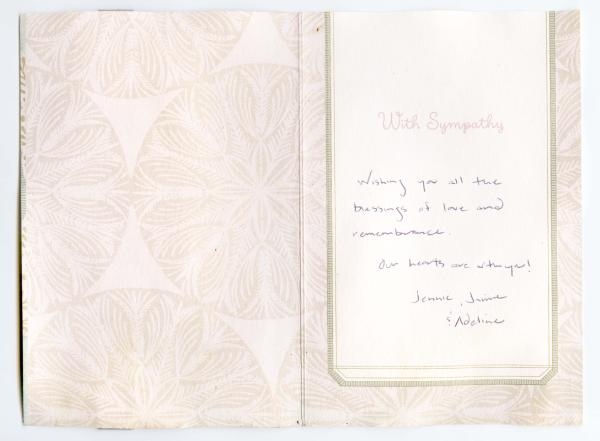 With Sympathy
Wishing you all the
blessings of love and
remembrance.
Our hearts are with you!
Jennie, Jaime
& Adeline